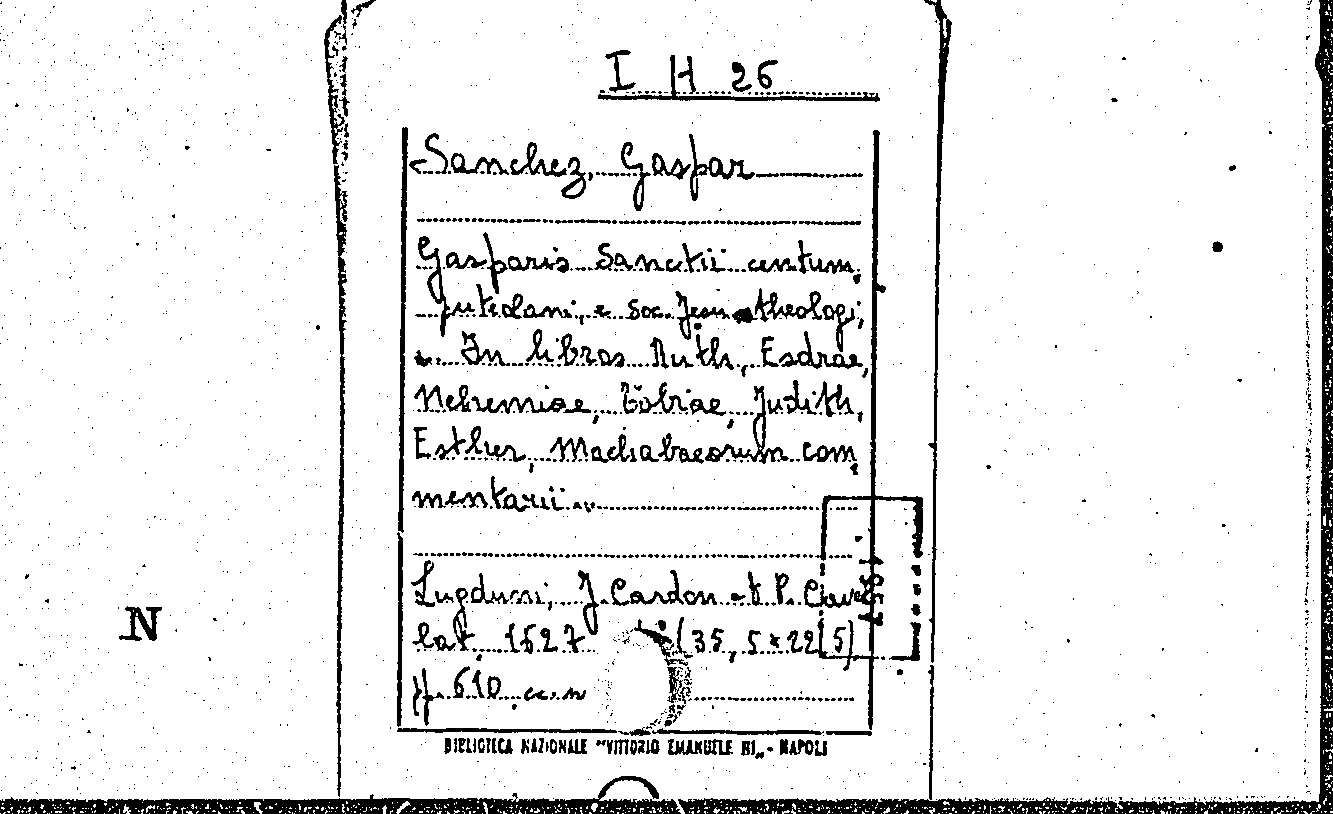 I H 26
Sanchez, Gaspar
Gasparis Sanctii centum,
puteolani, e Soc. Jesu theologi,
... In libros Ruth, Esdrae,
Nehemiae, Tobiae, Judith,
Esther, Machabaeorum com,
mentarii...
Lugduni, J. Cardon et P. Cavel,
lat, 1627 (35,5x22,5)
pp. 610, cc. n
N
BIBLIOTECA NAZIONALE "VITTORIO EMANUELE III„ - NAPOLI